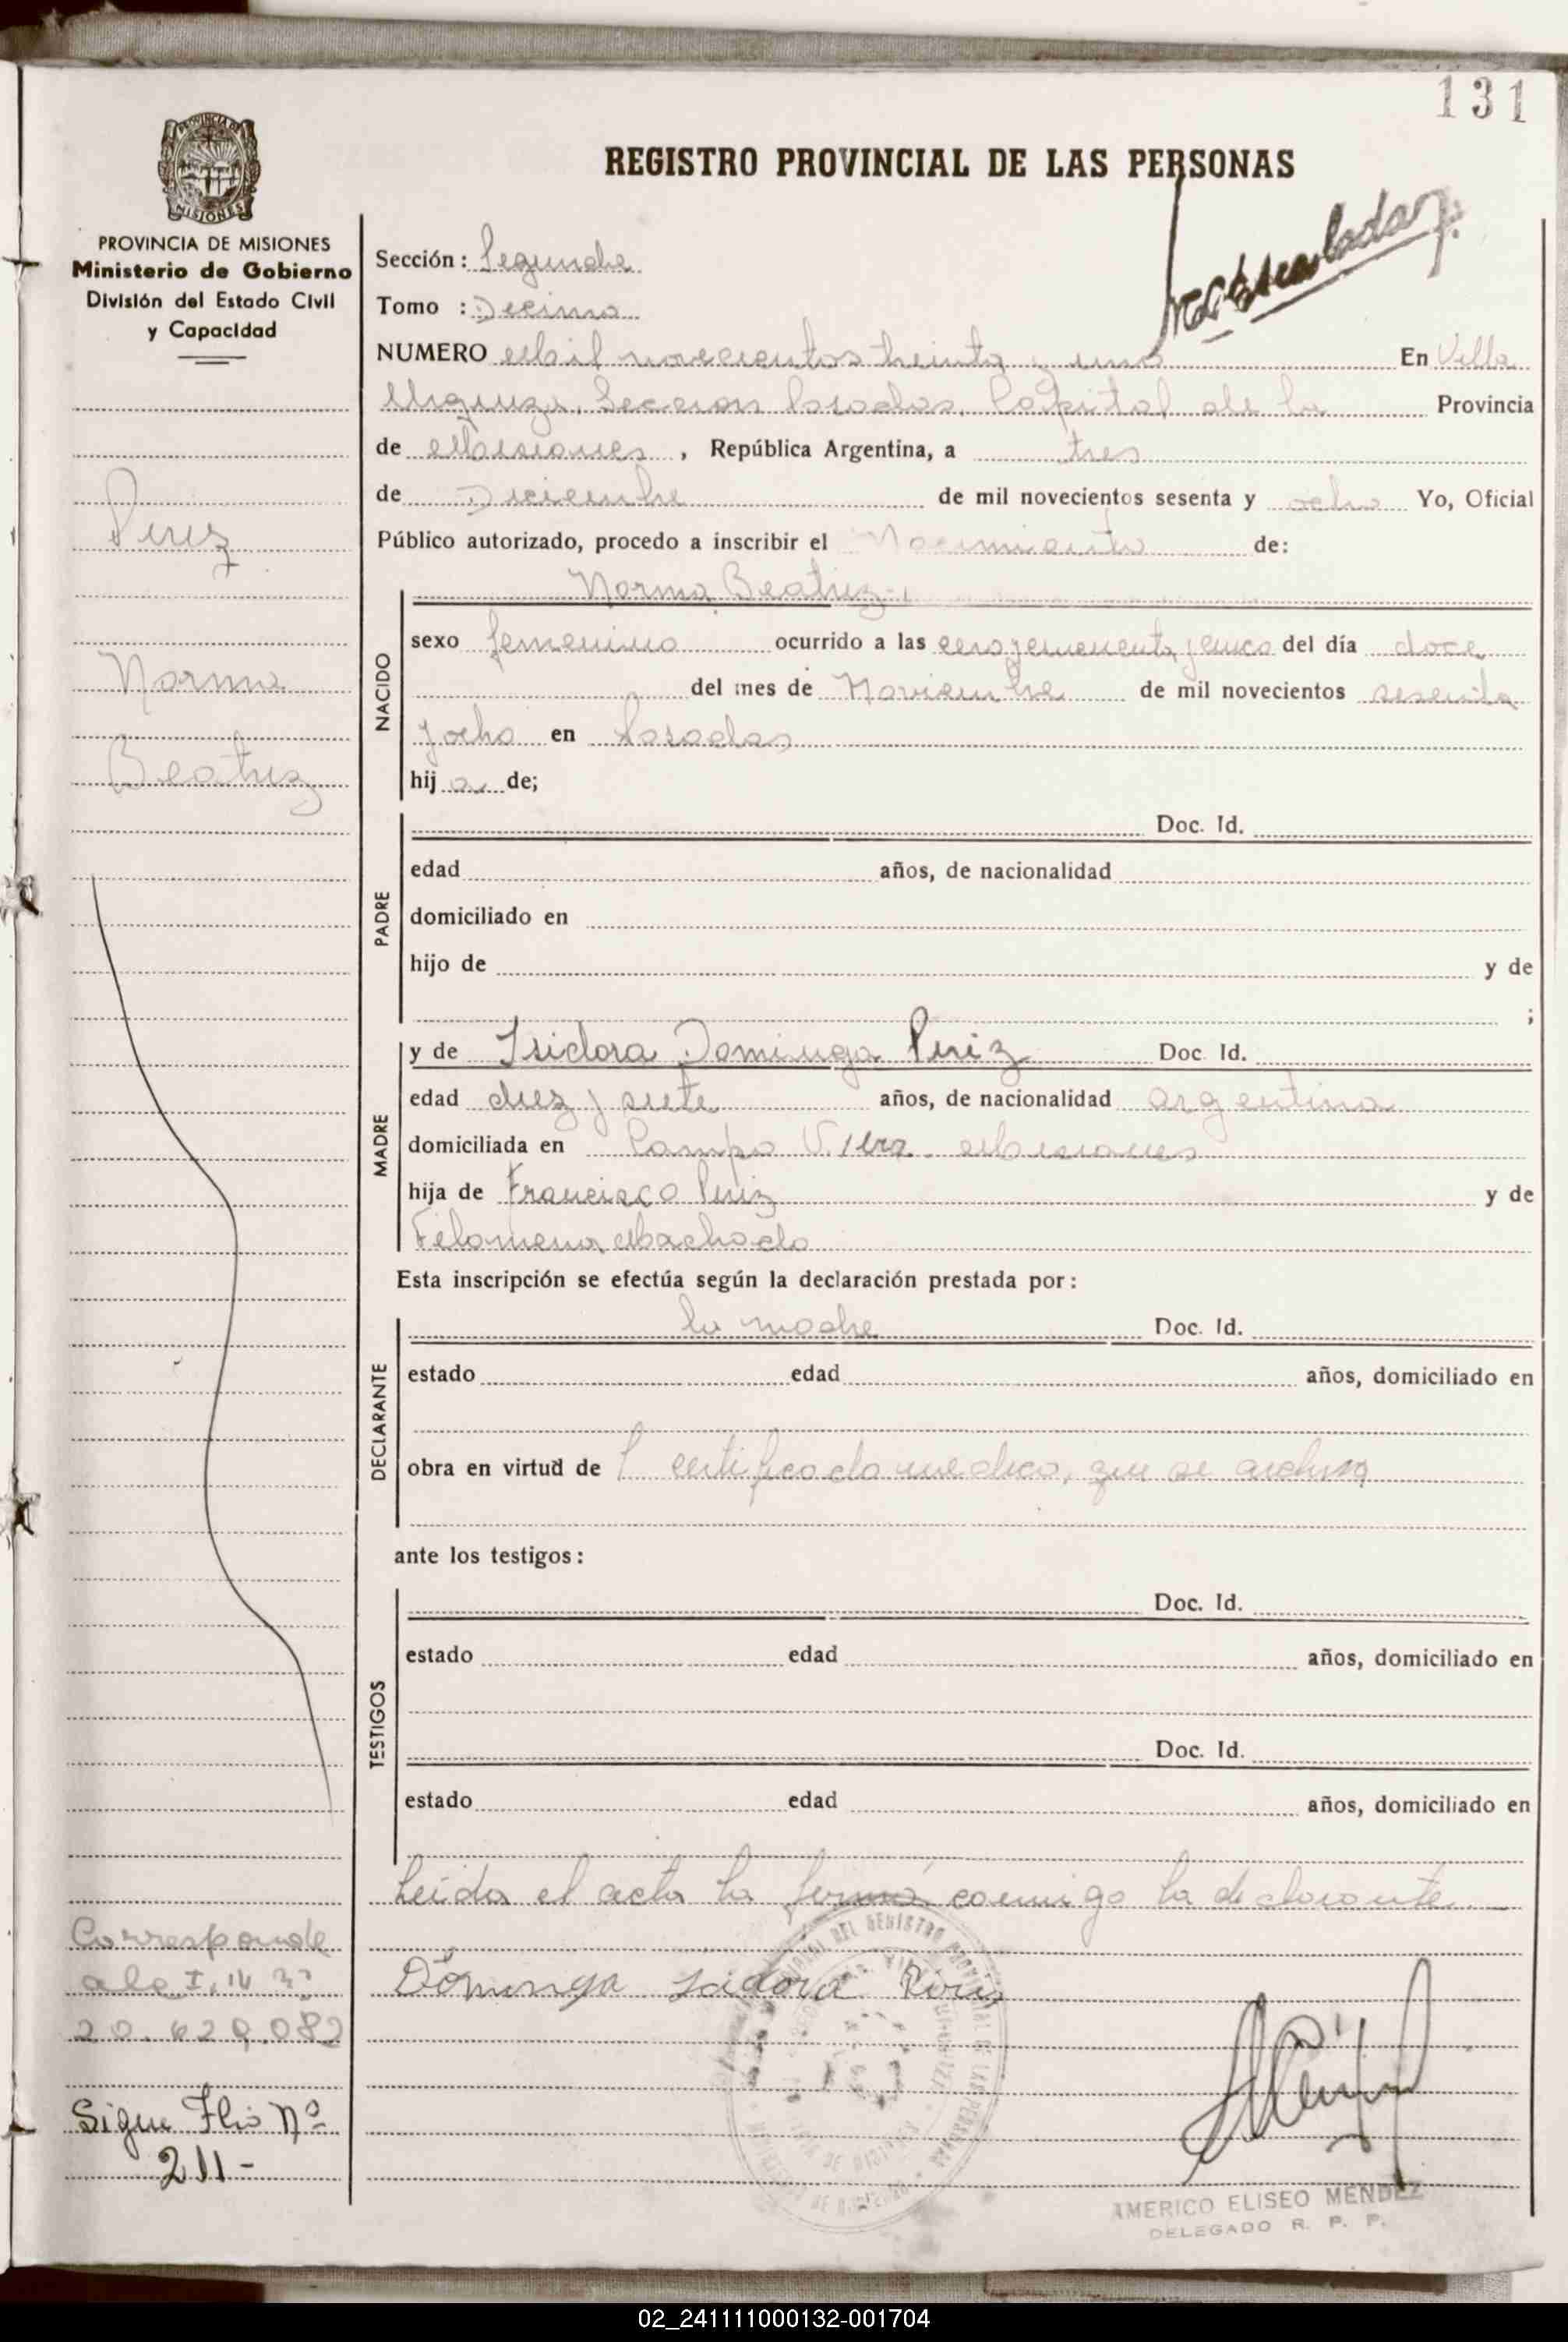 131
REGISTRO PROVINCIAL DE LAS PERSONAS
PROVINCIA DE MISIONES
Ministerio de Gobierno
División del Estado Civil
y Capacidad
Sección: Segunda
Tomo : Decimo
NUMERO Mil novecientos treinta y uno En Villa
Urquiza, Seccion Posadas, Capital de la Provincia
de Misiones, República Argentina, a tres
de Diciembre de mil novecientos sesenta y ocho Yo, Oficial
Público autorizado, procedo a inscribir el Nacimiento de:
Norma Beatriz
Perez
Norma
Beatriz
NACIDO
sexo femenino ocurrido a las cero y cincuenta y cinco del día doce
del mes de Noviembre de mil novecientos sesenta
y ocho en Posadas
hij a de;
PADRE
Doc. Id.
edad años, de nacionalidad
domiciliado en
hijo de y de
;
MADRE
y de Isidora Dominga Periz Doc. Id.
edad diez y siete años, de nacionalidad argentina
domiciliada en Campo Viera Misiones
hija de Francisco Periz y de
Filomena Machado
Esta inscripción se efectúa según la declaración prestada por:
DECLARANTE
la madre Doc. Id.
estado edad años, domiciliado en
obra en virtud de l certificado medico, que se archiva
ante los testigos:
TESTIGOS
Doc. Id.
estado edad años, domiciliado en
Doc. Id.
estado edad años, domiciliado en
Leida el acta la firmó conmigo la declarante.
Dominga Isidora Periz
Corresponde
al
20.620.082
Sigue Flio Nº
211-
AMERICO ELISEO MENDEZ
DELEGADO R. P. P.
02_241111000132-001704